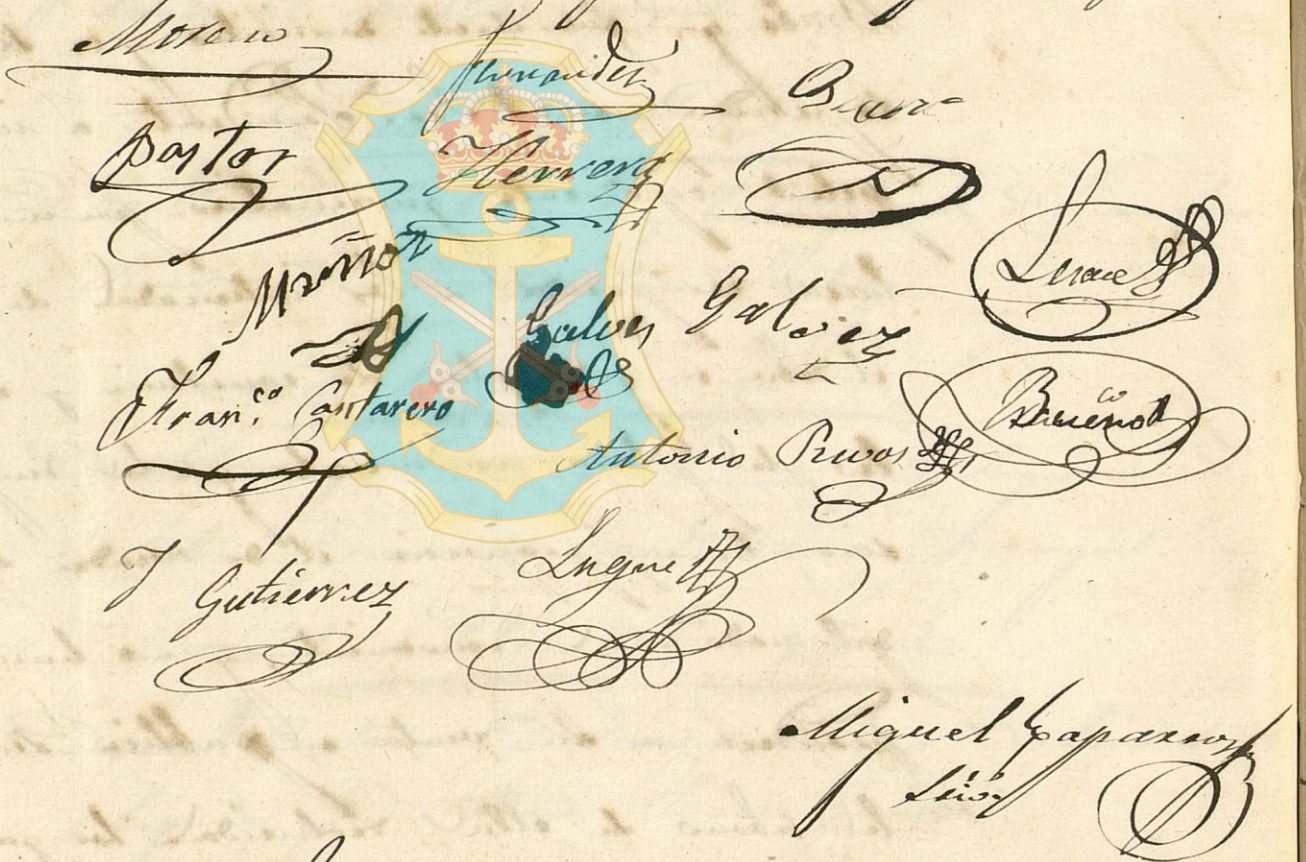 Moreno Fernandez
Pastor Herrera
Muñoz
Luque
Galvez Galvez
Fran.co Cantarero
Antonio Rivas
J Gutierrez Luque
Miguel Caparros
Srio.